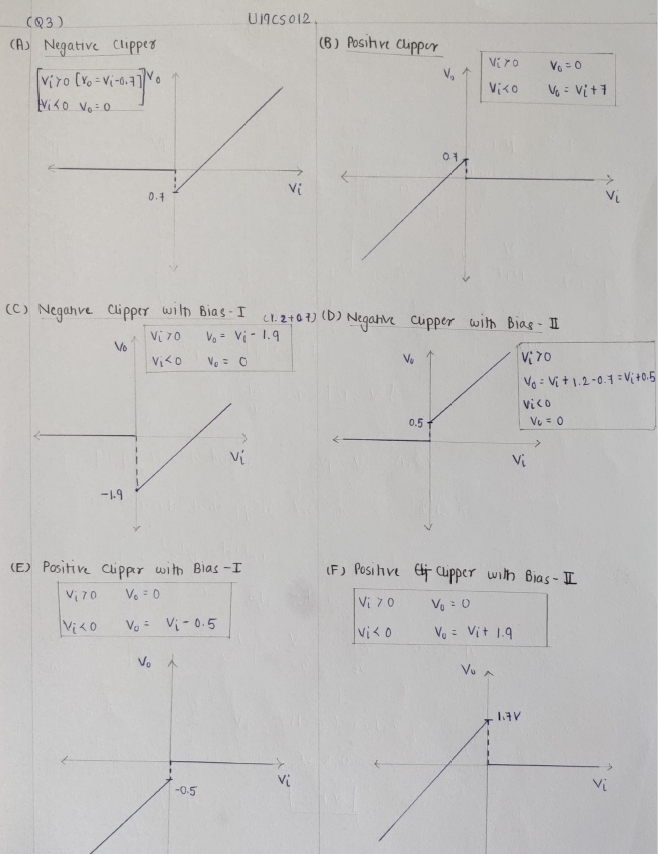 (Q3) U19CS012.
(A) Negative Clipper
Vi>0 [Vo = Vi-0.7] Vo
Vi<0 Vo = 0
0.7
Vi
(B) Positive Clipper
Vi>0 Vo = 0
Vi<0 Vo = Vi+7
Vo
0.7
Vi
(C) Negative Clipper with Bias-I (1.2+0.7)
Vi>0 Vo = Vi - 1.9
Vi<0 Vo = 0
Vo
Vi
-1.9
(D) Negative Clipper with Bias-II
Vo
Vi>0
Vo = Vi + 1.2-0.7 = Vi+0.5
Vi<0
Vo = 0
0.5
Vi
(E) Positive Clipper with Bias-I
Vi>0 Vo = 0
Vi<0 Vo = Vi - 0.5
Vo
Vi
-0.5
(F) Positive Clipper with Bias-II
Vi>0 Vo = 0
Vi<0 Vo = Vi + 1.9
Vo
1.7V
Vi